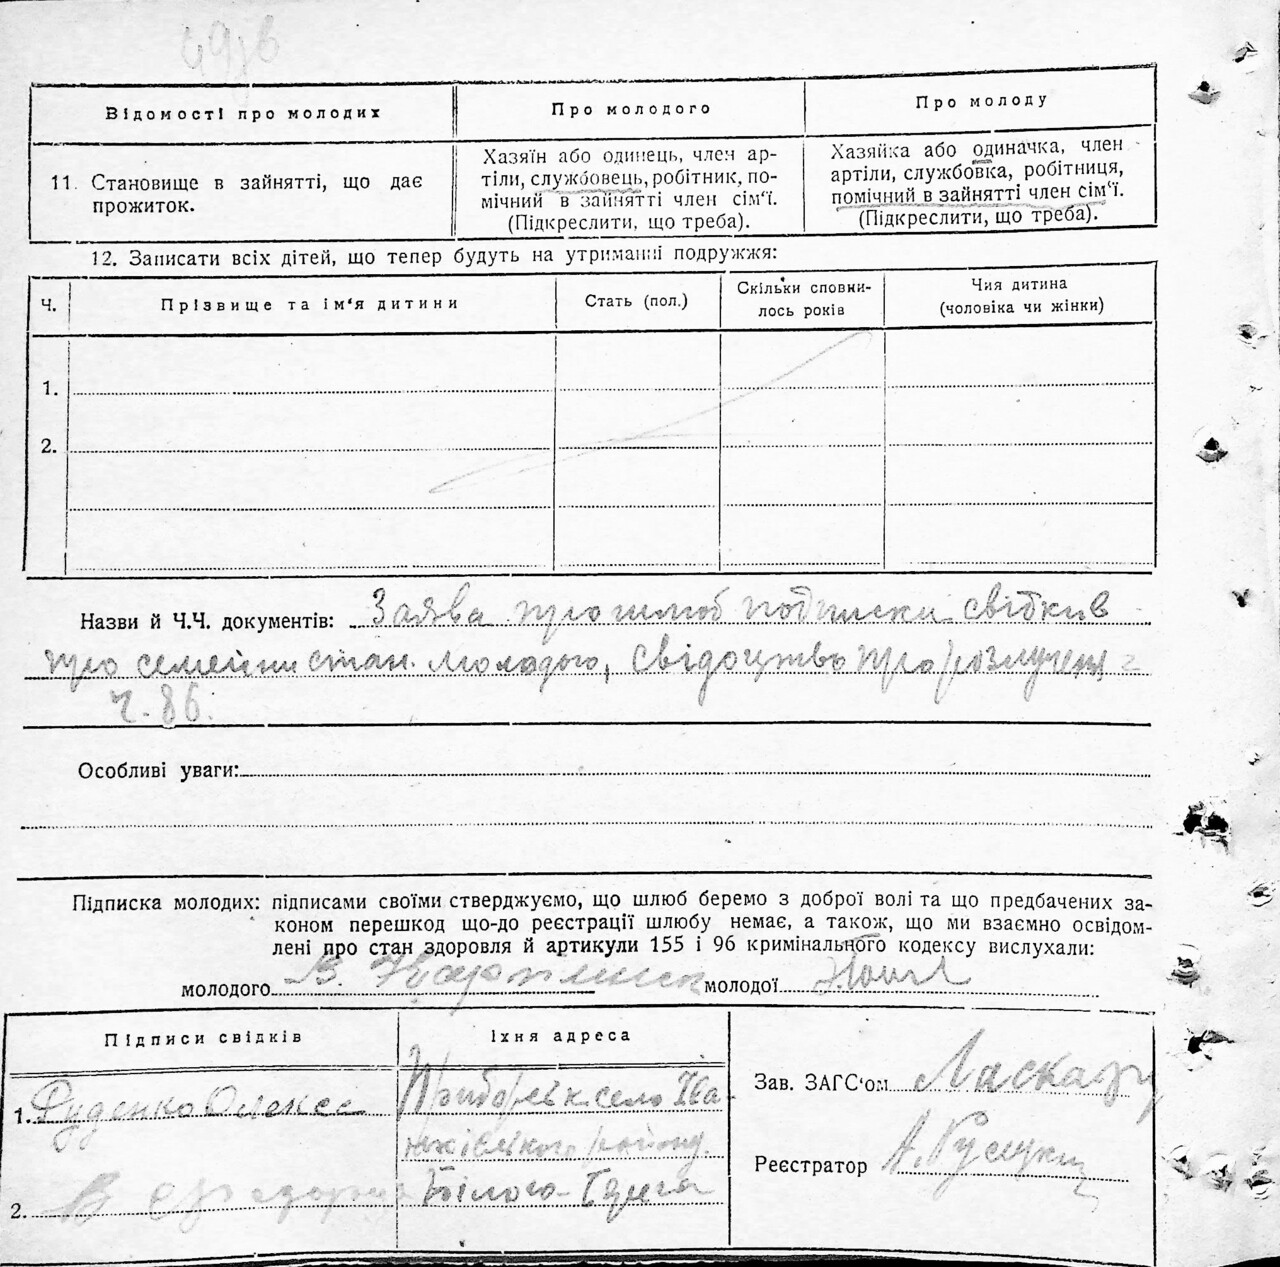 Відомості про молодих
Про молодого
Про молоду
11. Становище в зайнятті, що дає
прожиток.
Хазяїн або одинець, член ар-
тілі, службовець, робітник, по-
мічний в зайнятті член сім'ї.
(Підкреслити, що треба).
Хазяйка або одиначка, член
артілі, службовка, робітниця,
помічний в зайнятті член сім'ї.
(Підкреслити, що треба).
12. Записати всіх дітей, що тепер будуть на утриманні подружжя:
Ч.
Прізвище та ім'я дитини
Стать (пол.)
Скільки сповни-
лось років
Чия дитина
(чоловіка чи жінки)
1.
2.
Назви й Ч.Ч. документів: Заява про шлюб подписки свідків
про семейни стан. молодого, свідоцтво про розлучення
ч. 86.
Особливі уваги:
Підписка молодих: підписами своїми стверджуємо, що шлюб беремо з доброї волі та що предбачених за-
коном перешкод що-до реєстрації шлюбу немає, а також, що ми взаємно освідом-
лені про стан здоровля й артикули 155 і 96 кримінального кодексу вислухали:
молодого В.
молодої
Підписи свідків
Їхня адреса
1. Руденко Олекса
село Іва-
району.
2. В
Білого
Зав. ЗАГС'ом Ласкар
Реєстратор А.